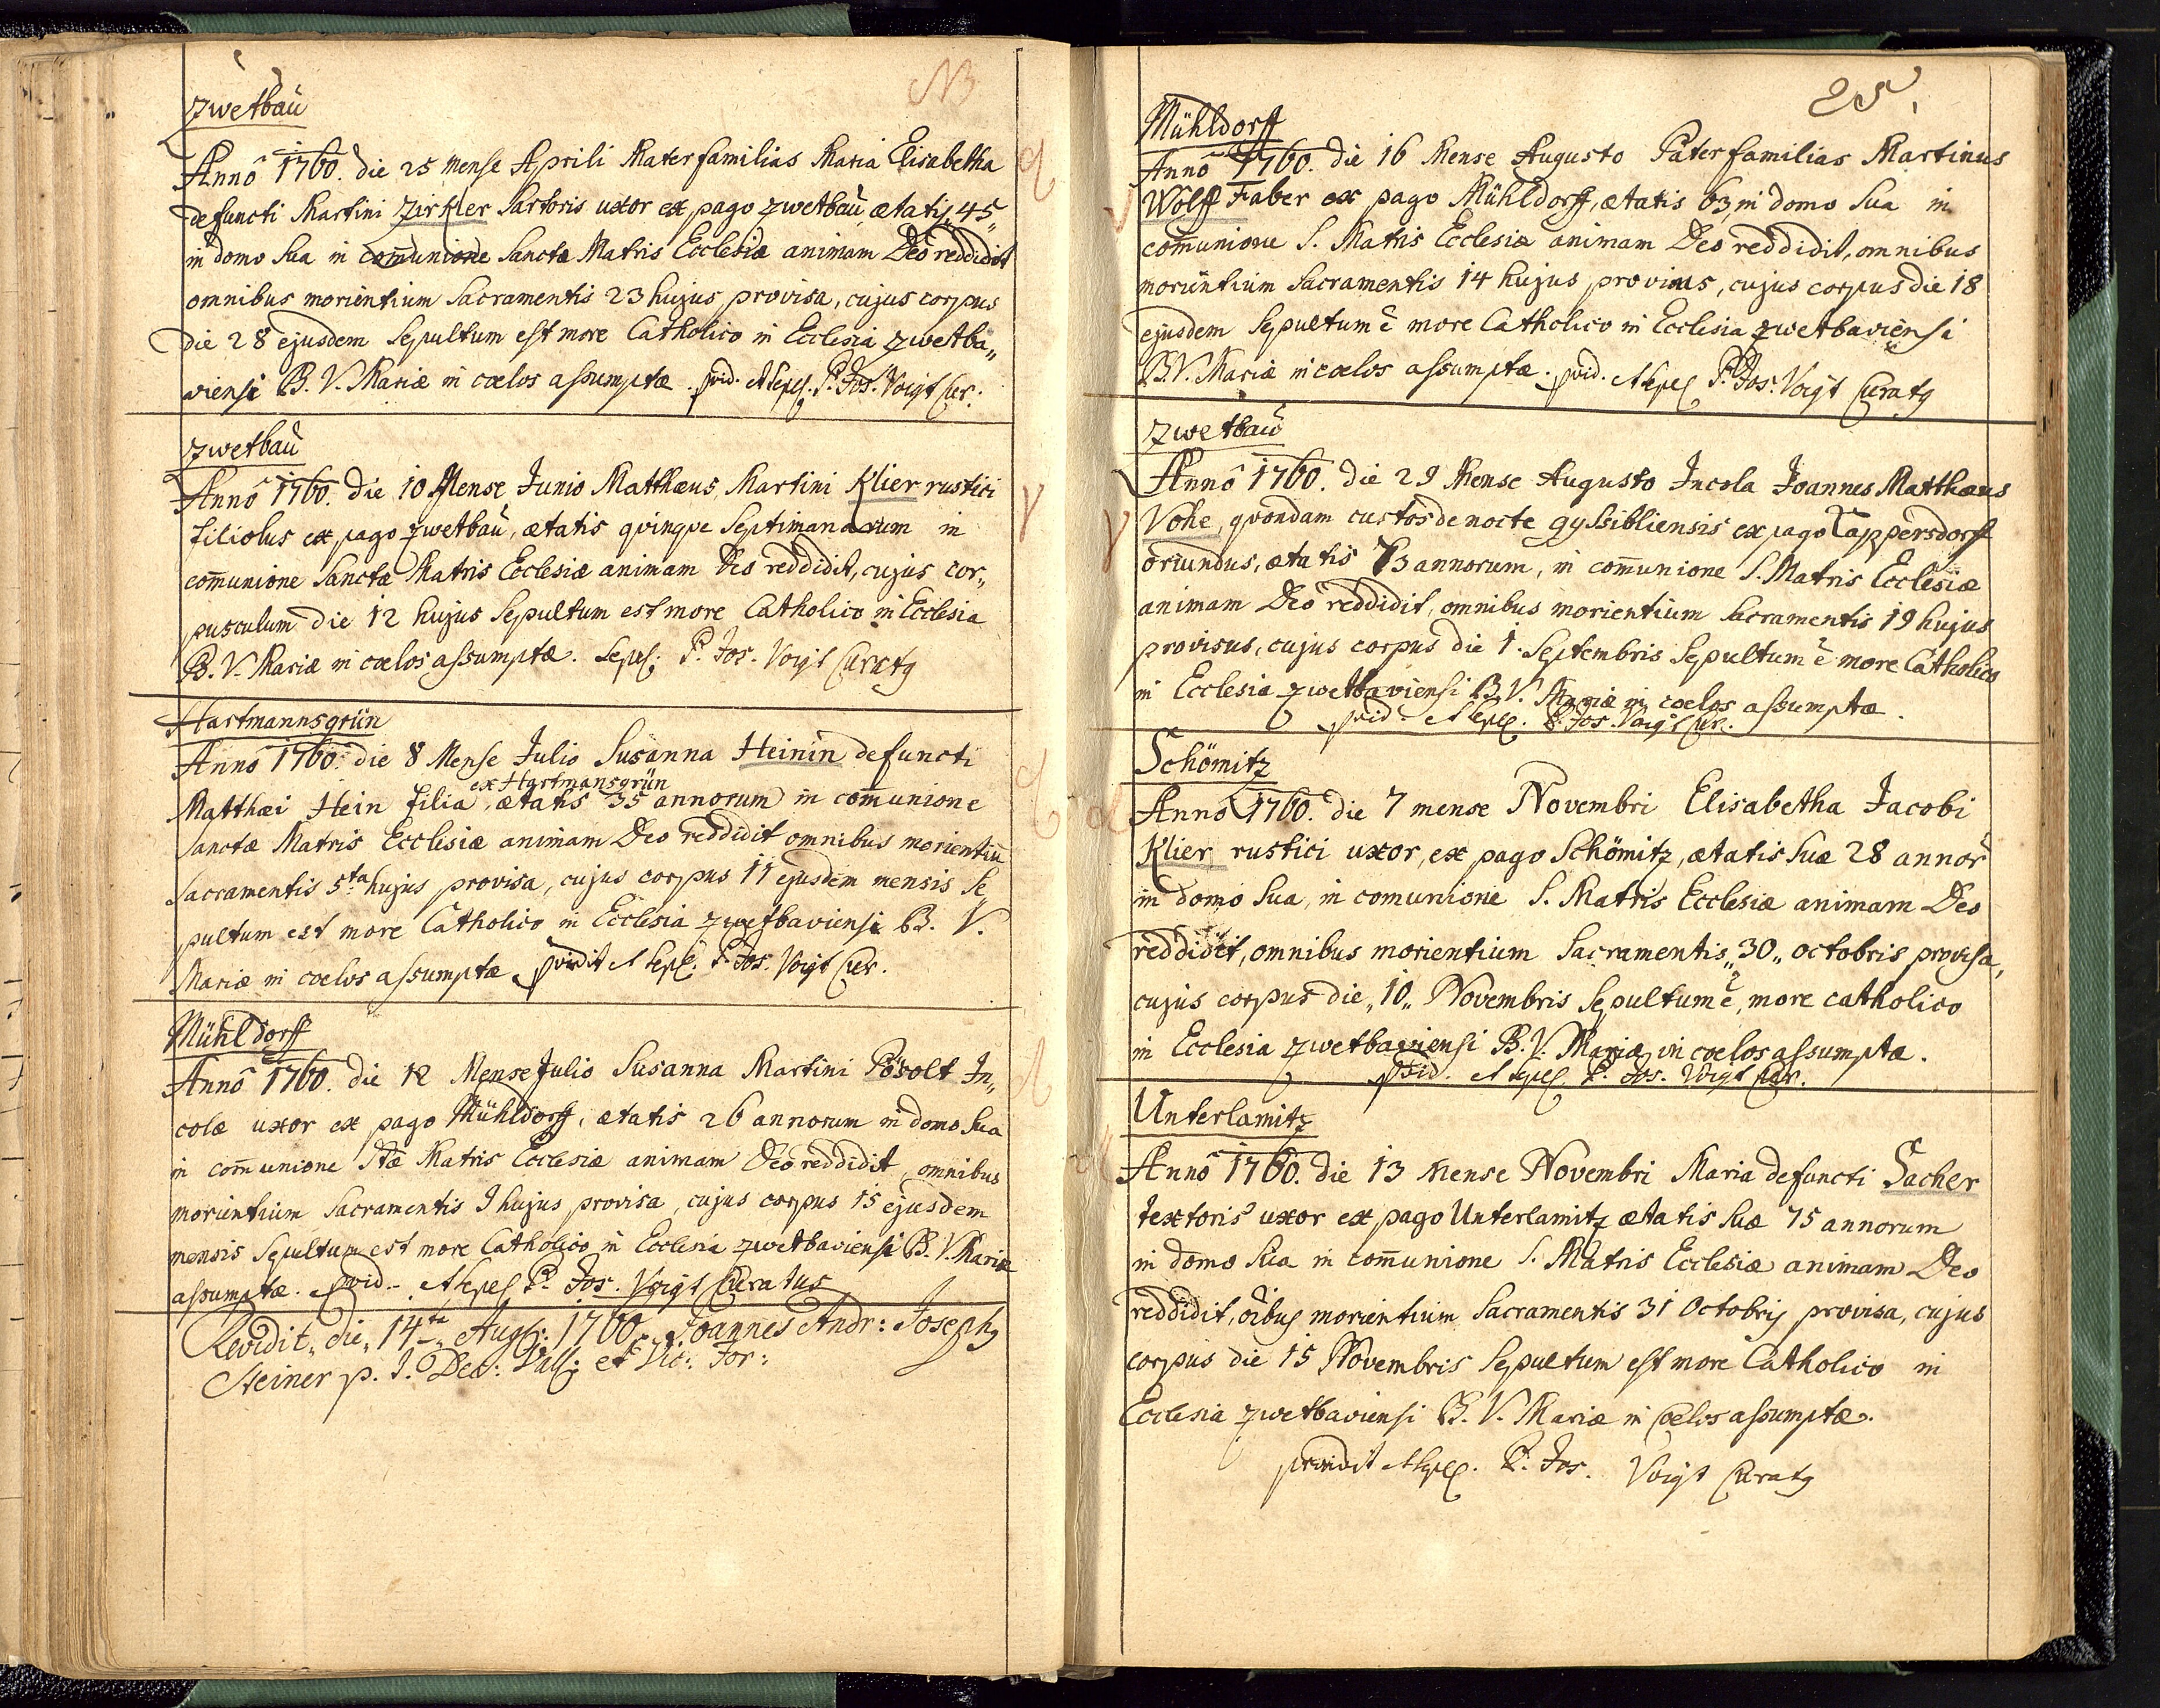 NB
Zwetbaú
Annô 1760. die 25 mense Aprili Mater familias Maria Elisabetha
defuncti Martini Zirkler Sartoris uxor ex pago Zwetbaú ætatis 45
in domo sua in com̃unione Sanctæ Matris Ecclesiæ animam Deo reddidit
omnibus morientium Sacramentis 23 hujus provisa, cujus corpus
die 28 ejusdem Sepultum est more Catholico in Ecclesia Zwetba„
viensi B. V. Mariæ in cœlos assumptæ. P. Jos. Voigt Cur:
Zwetbaú
Annô 1760. die 10 Mense Junio Matthæus, Martini Klier rustici
filiolus ex pago Zwetbaú, ætatis qvinqve Septimanarum in
com̃unione Sanctæ Matris Ecclesiæ animam Deo reddidit, cujus cor„
pusculum die 12 hujus Sepultum est more Catholico in Ecclesia
B. V. Mariæ in cœlos assumptæ. P. Jos. Voigt Curatg
Hartmannsgrün
Annô 1760. die 8 Mense Julio Susanna Heinin defuncti
ex Hartmansgrün
Matthæi Hein filia, ætatis 35 annorum in com̃unione
Sanctæ Matris Ecclesiæ animam Deo reddidit omnibus morientiũ
Sacramentis 5ta hujus provisa, cujus corpus 11 ejusdem mensis Se„
pultum est more Catholico in Ecclesia Zwetbaviensi B. V.
Mariæ in cœlos assumptæ P. Jos. Voigt Cur.
Mühldorff
Annô 1760. die 12 Mense Julio Susanna Martini Pösolt In„
colæ uxor ex pago Mühldorff, ætatis 26 annorum in domo sua
in com̃unione Stæ Matris Ecclesiæ animam Deo reddidit, omnibus
morientium Sacramentis 9 hujus provisa, cujus corpus 15 ejusdem
mensis Sepultum est more Catholico in Ecclesia Zwetbaviensi B. V. Mariæ
assumptæ. P. Jos. Voigt Curatus
Revidit „die„ 14ta Augs: 1760. Joannes Andr: Josephg
Steiner p. t. Dec: et Vic: For:
25.
Mühldorff
Annô 1760. die 16 Mense Augusto Pater familias Martinus
Wolff Faber ex pago Mühldorff, ætatis 63, in domo sua in
com̃unione S. Matris Ecclesiæ animam Deo reddidit, omnibus
morientium Sacramentis 14 hujus provisus, cujus corpus die 18
ejusdem Sepultum ẽ more Catholico in Ecclesia Zwetbaviensi
B. V. Mariæ in cœlos assumptæ. P. Jos. Voigt Curatg
Zwetbaú
Annô 1760. die 29 Mense Augusto Incola Joannes Matthæus
Vohe, qvondam custos de nocte gyssibliensis ex pago Tappersdorff
oriundus, ætatis 73 annorum, in com̃unione S. Matris Ecclesiæ
animam Deo reddidit, omnibus morientium Sacramentis 19 hujus
provisus, cujus corpus die 1. Septembris Sepultum ẽ more Catholico
in Ecclesia Zwetbaviensi B. V. Mariæ in cœlos assumptæ.
P. Jos. Voigt Cur.
Schömitz
Annô 1760. die 7 mense Novembri Elisabetha Jacobi
Klier rustici uxor, ex pago Schömitz, ætatis suæ 28 annor
in domo sua, in comunione S. Matris Ecclesiæ animam Deo
reddidit, omnibus morientium Sacramentis „30„ octobris provisa,
cujus corpus die „10„ Novembris Sepultum ẽ, more catholico
in Ecclesia Zwetbaviensi B. V. Mariæ in cœlos assumptæ.
P. Jos. Voigt Cur.
Unterlamitz
Annô 1760. die 13 Mense Novembri Maria defuncti Sacher
Textoris uxor ex pago Unterlamitz ætatis suæ 75 annorum
in domo sua in com̃unione S. Matris Ecclesiæ animam Deo
reddidit, oĩbus morientium Sacramentis 31 Octobris provisa, cujus
corpus die 15 Novembris Sepultum est more Catholico in
Ecclesia Zwetbaviensi B. V. Mariæ in Cœlos assumptæ.
providit P. Jos. Voigt Curatg